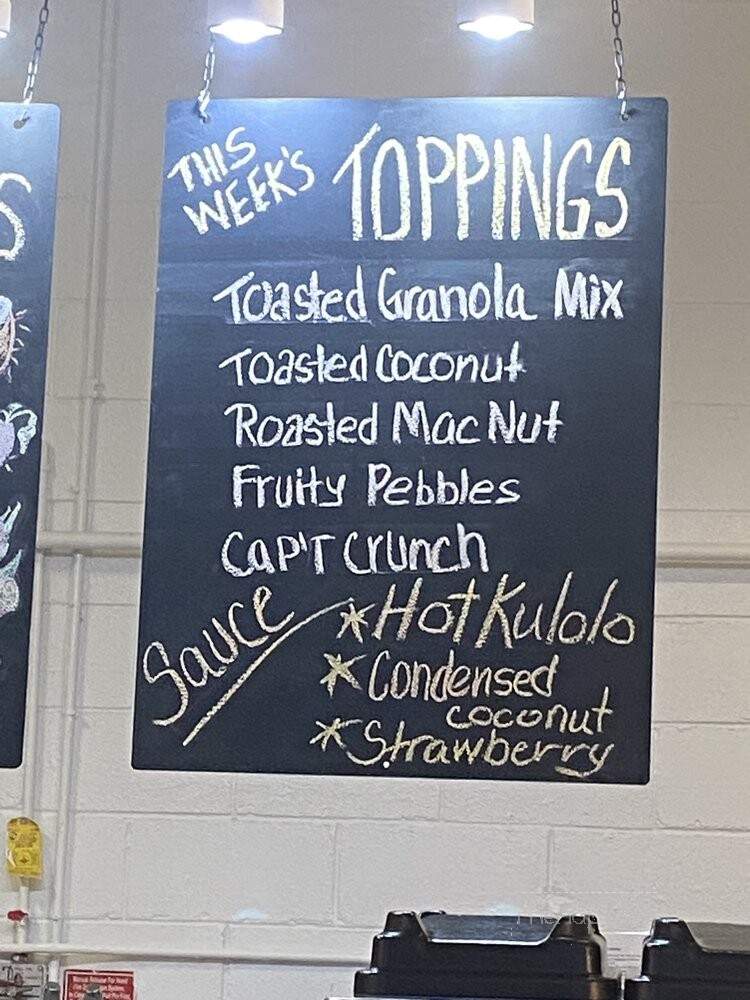 THIS WEEK'S TOPPINGS
Toasted Granola Mix
Toasted Coconut
Roasted Mac Nut
Fruity Pebbles
CAP'T CRUNCH
Sauce
*Hot Kulolo
*Condensed
coconut
*Strawberry